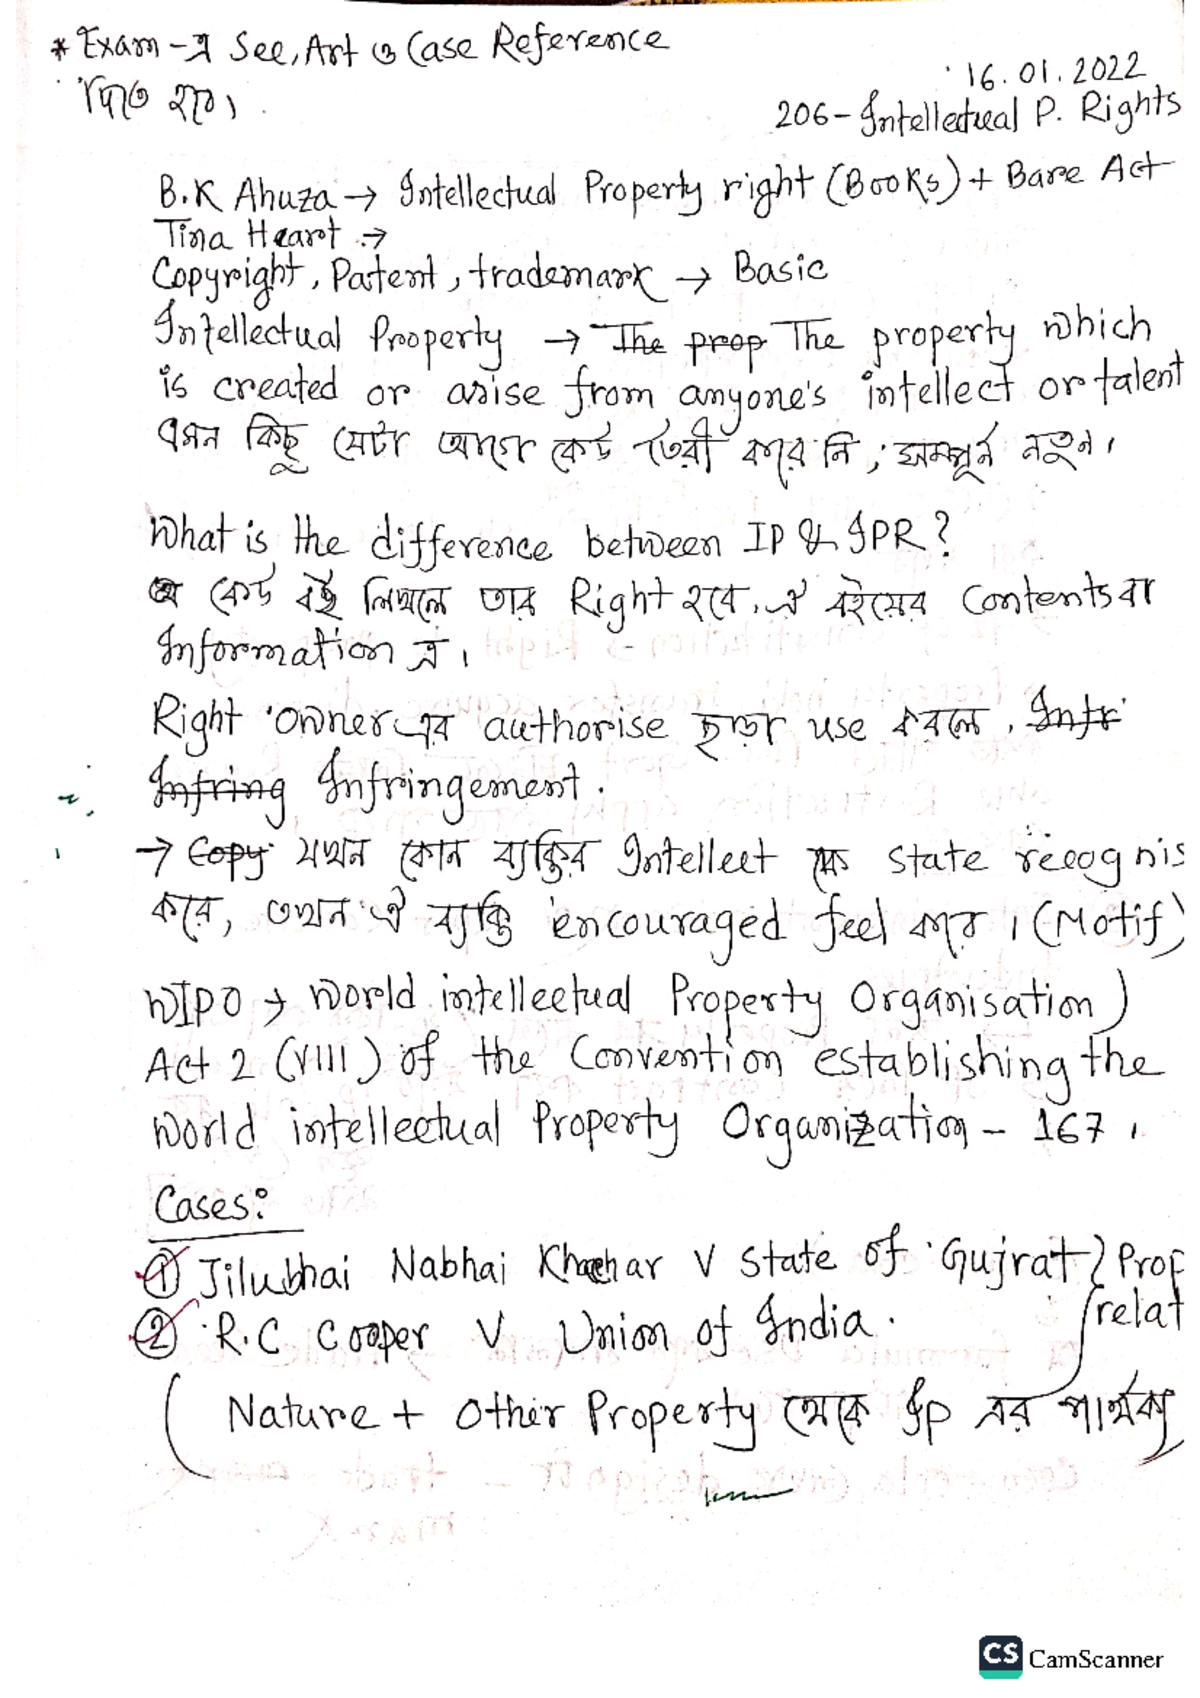 * Exam-এ See, Art ও Case Reference
দিতে হবে।
16.01.2022
206- Intellectual P. Rights
B.K Ahuza → Intellectual Property right (Books) + Bare Act
Tina Heart →
Copyright, Patent, trademark → Basic
Intellectual Property → The prop The property which
is created or arise from anyone's intellect or talent
এমন কিছু যেটা আগে কেউ তৈরী করে নি, সম্পূর্ন নতুন।
What is the difference between IP & IPR?
কেউ বই লিখলে তার Right হবে, ঐ বইয়ের Contents বা
Information এ।
Right owner এর authorise ছাড়া use করলে, Infr
Infring Infringement.
→ Copy যখন কোন ব্যক্তির Intellect কে state recognis
করে, তখন ঐ ব্যক্তি encouraged feel করে। (Motif)
WIPO → World intellectual Property Organisation)
Act 2 (VIII) of the Convention establishing the
World intellectual Property Organization - 167।
Cases:
① Jilubhai Nabhai Khachar V State of Gujrat } Prop
② R.C Cooper V Union of India. relat
(Nature + Other Property থেকে Ip এর পার্থক্য
CS CamScanner